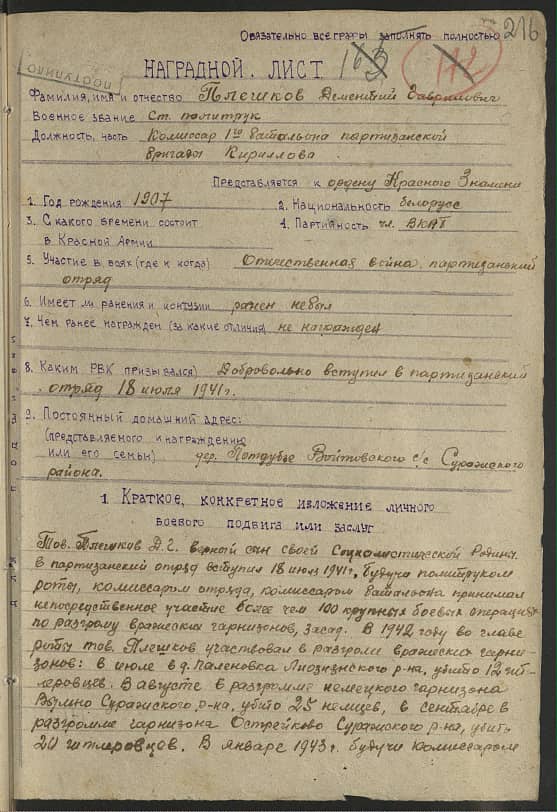 Обязательно все графы заполнять полностью
216
163
172
ПОСТУПИЛО
НАГРАДНОЙ. ЛИСТ
Фамилия, имя и отчество Плешков Дементий Гаврилович
Военное звание Ст. политрук
Должность, часть Комиссар 1го батальона партизанской
бригады Кириллова
Представляется к ордену Красного Знамени
1. Год рождения 1907
2. Национальность белорусс
3. С какого времени состоит
в Красной Армии
4. Партийность чл. ВКПб
5. Участие в боях (где и когда) Отечественная война, партизанский
отряд
6. Имеет ли ранения и контузии ранен небыл
7. Чем ранее награжден (за какие отличия) не награжден
8. Каким РВК призывался) Добровольно вступил в партизанский
отряд 18 июля 1941г.
9. Постоянный домашний адрес:
(представляемого к награждению
или его семьи) дер. Войтовского с/с Суражского
района.
1. Краткое, конкретное изложение личного
боевого подвига или заслуг
Тов. Плешков Д.Г. верный сын своей Социалистической Родины
в партизанский отряд вступил 18 июля 1941г. будучи политруком
роты, комиссаром отряда, комиссаром батальона принимал
непосредственное участие более чем 100 крупных боевых операциях
по разгрому вражеских гарнизонов, засад. В 1942 году во главе
роты тов. Плешков участвовал в разгроме вражеских гарни-
зонов: в июле в д. Паленовка Лиозненского р-на, убито 12 гит-
леровцев. В августе в разгромме немецкого гарнизона
Вымно Суражского р-на, убито 25 немцев, в сентябре в
разгромме гарнизона Острейково Суражского р-на, убито
20 гитлеровцев. В январе 1943г. будучи комиссаром